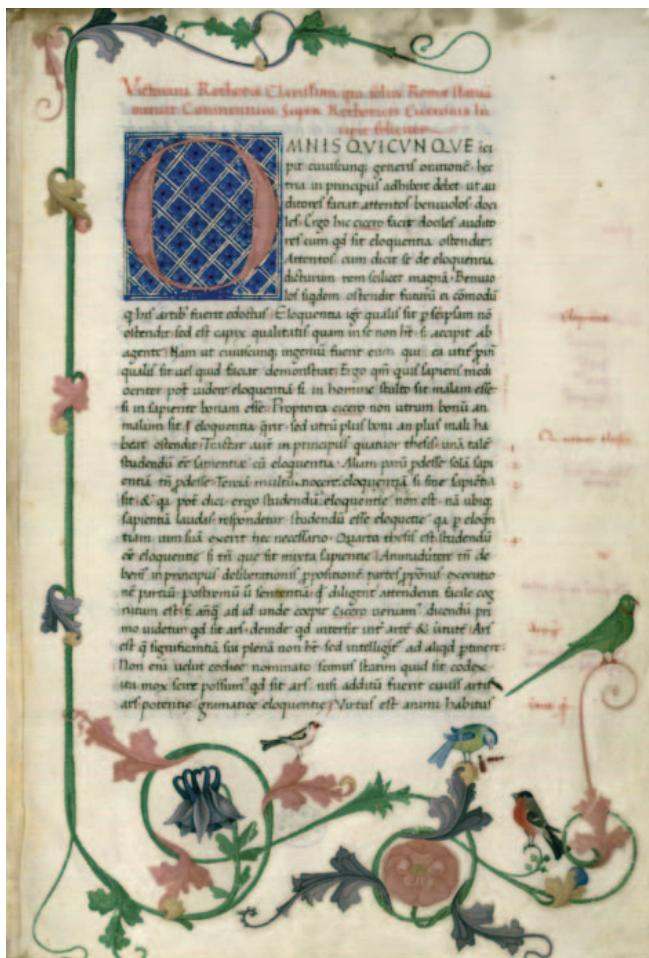 Victorini Rethoris Clarissimi qui solus Rome statuā
meruit Commentum Supra Rethoricis Ciceronis In
cipit feliciter
OMNIS QVICVNQVE ici
pit cuiuscunq generis orationē hec
tria in principiis adhibere debet ut au
ditores faciat attentos beniuolos doci
les Ergo hic cicero facit dociles audito
res cum qd sit eloquentia ostendit
Attentos cum dicit se de eloquentia
dicturum rem scilicet magnā Beniuo
los siqdem ostendit futurū ei cōmodū
q his artib fuerit edoctus Eloquentia igr qualis sit p seipsam nō
ostendit sed est capix qualitatis quam in se non ht si accipit ab
agente Nam ut cuiuscunq ingeniū fuerit eam qui ea utit
qualis sit uel quid faciat demonstrat Ergo qm quis sapiens medi
ocriter pot videre eloquentiā si in homine stulto sit malam esse
si in sapiente bonam esse Propterea cicero non utrum bonū an
malum sit eloquentia qrit sed utrū plus boni an plus mali ha
beat ostendit Tractat aut in principiis quatuor thesis unā talē
studendū ee sapientie cū eloquentia Aliam parū pdesse solā sapi
entiā pdesse Terciā multū nocere eloquentiā si sine sapiētia
sit & qa pot dici ergo studendū eloquentie non est nā ubiq
sapientiā laudas respondetur studendū esse eloquētie qa p eloqn
tiam uim suā exerit hec necessario Quarta thesis est studendū
ee eloquentie si que sit mixta sapientie Animaduertere debe
beris in principiis deliberationis ppositionē partes executio
nē partiū postremū sententiā diligenti attendenti facile cog
nitum est ad id unde coepit Cicero ueniam dicendū pri
mo uidetur qd sit ars deinde qd intersit int artē & uirtutē Ars
est q significantiā sui plenā non ht sed intelligit ad aliqd ptinere
Non eni uelut codice nominato scimus statim quid sit codex
ita mox scire possum qd sit ars nisi additū fuerit cuius artis
ars potentie gramatice eloquentie Virtus est animi habitus